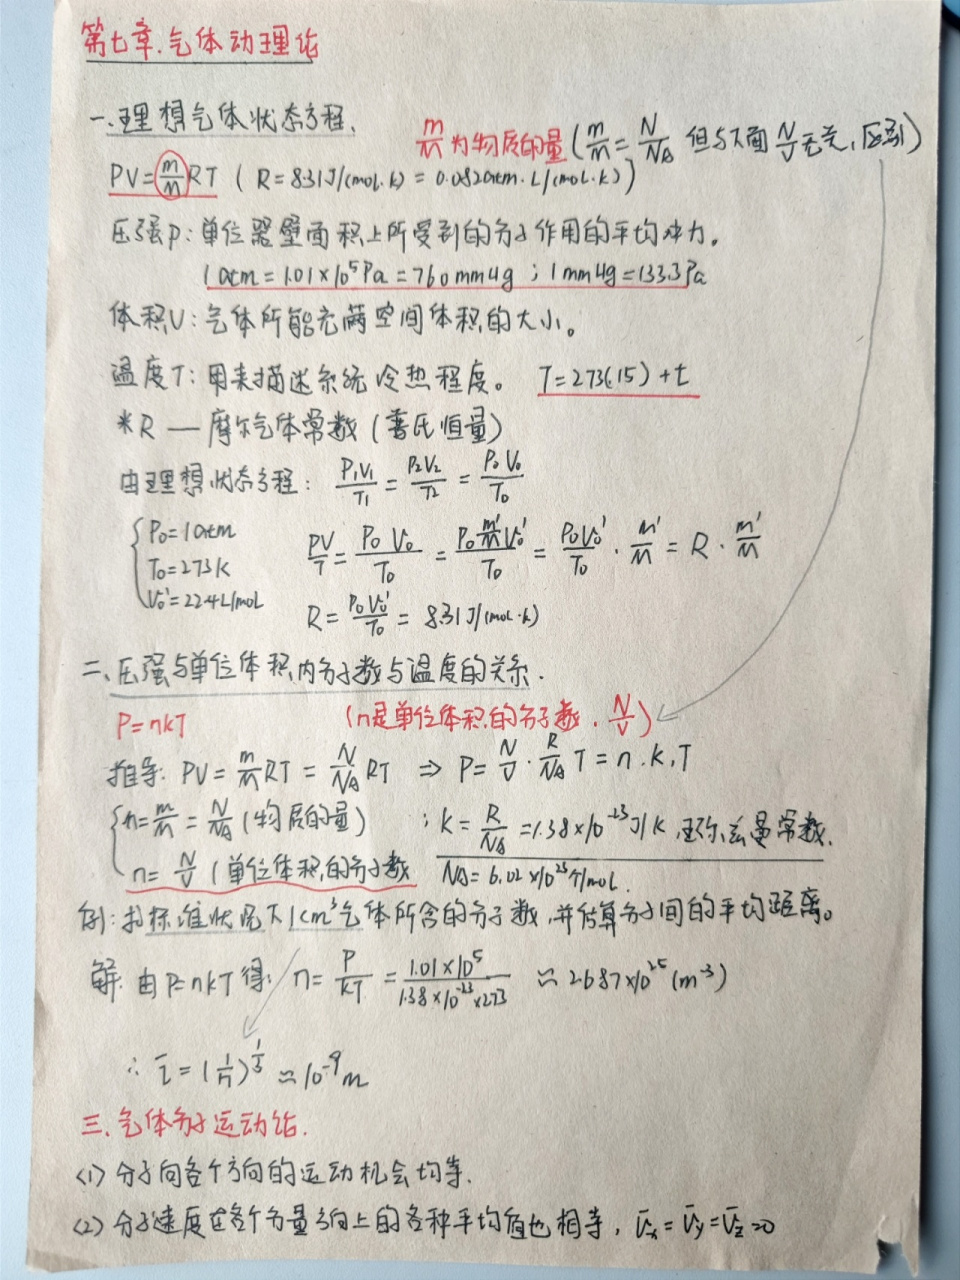 第七章.气体动理论
一.理想气体状态方程.
m/M 为物质的量(m/M = N/NA 但与下面 N/V 无关,区别)
PV = m/M RT ( R = 8.31J/(mol·k) = 0.082atm·L/(mol·k))
压强P:单位器壁面积上所受到的分子作用的平均冲力。
1atm = 1.01×10⁵Pa = 760mmHg ; 1mmHg = 133.3Pa
体积V:气体所能充满空间体积的大小。
温度T:用来描述系统冷热程度。 T=273(.15)+t
*R — 摩尔气体常数(普氏恒量)
由理想状态方程: P₁V₁/T₁ = P₂V₂/T₂ = P₀V₀/T₀
{ P₀=1atm
T₀=273k
V₀'=22.4L/mol
PV/T = P₀V₀/T₀ = P₀ m'/M V₀'/T₀ = P₀V₀'/T₀ · m'/M = R · m'/M
R = P₀V₀'/T₀ = 8.31J/(mol·k)
二、压强与单位体积内分子数与温度的关系.
P=nkT (n是单位体积的分子数. N/V)
推导: PV = m/M RT = N/NA RT ⇒ P = N/V · R/NA T = n.k.T
{ n = m/M = N/NA (物质的量) ; k = R/NA = 1.38×10⁻²³J/k .玻尔兹曼常数.
n = N/V (单位体积的分子数 NA = 6.02×10²³个/mol.
例:求标准状况下1cm³气体所含的分子数,并估算分子间的平均距离。
解: 由P=nkT得: n = P/kT = 1.01×10⁵/1.38×10⁻²³×273 ≈ 2.687×10²⁵(m⁻³)
∴ l̄ = (1/n)^1/3 ≈ 10⁻⁹m
三.气体分子运动论.
(1) 分子向各个方向的运动机会均等.
(2) 分子速度在各个分量方向上的各种平均值也相等, v̄x = v̄y = v̄z = 0